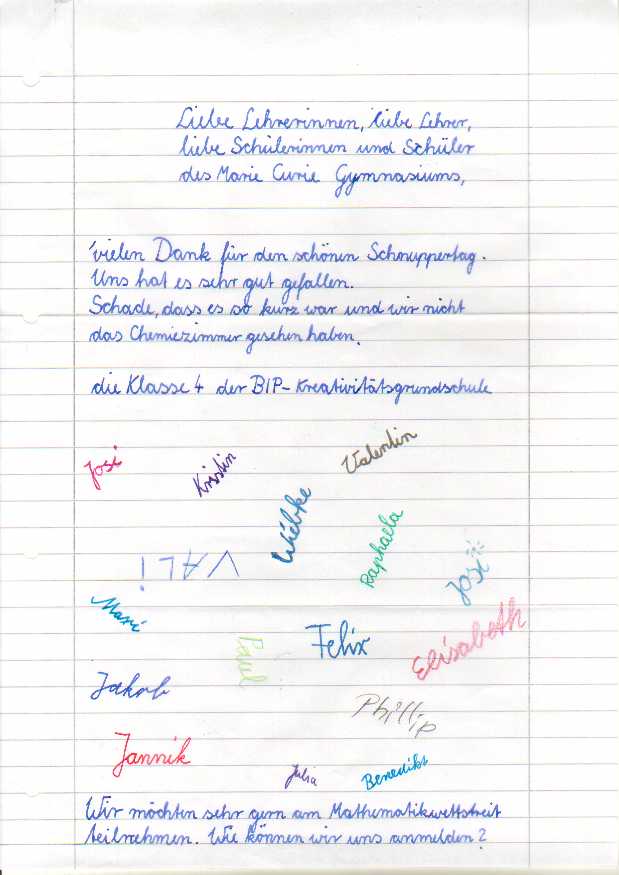 Liebe Lehrerinnen, liebe Lehrer,
liebe Schülerinnen und Schüler
des Marie Curie Gymnasiums,
vielen Dank für den schönen Schnuppertag.
Uns hat es sehr gut gefallen.
Schade, dass es so kurz war und wir nicht
das Chemiezimmer gesehen haben.
die Klasse 4 der BIP-Kreativitätsgrundschule
Josi
Kristin
Valentin
Wiebke
Raphaela
VALI
Josi
Maxi
Paul
Felix
Elisabeth
Jakob
Phillip
Jannik
Julia
Benedikt
Wir möchten sehr gern am Mathematikwettstreit
teilnehmen. Wie können wir uns anmelden?